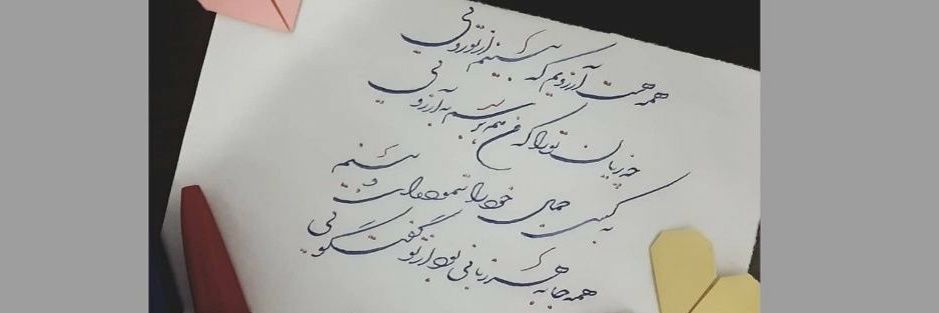 همه هست آرزویم که ببینم از تو رویی
چه زیان تو را که من هم برسم به آرزویی
به کسی جمال خود را ننموده‌ای و بینم
همه جا به هر زبانی بود از تو گفت‌گویی